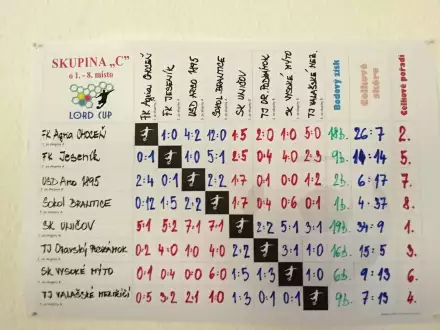 SKUPINA „C"
o 1. - 8. místo
LORD CUP
FK Agria CHOCEŇ
FK JESENÍK
USD ARNO 1895
SOKOL BRANTICE
SK UNIČOV
TJ OR. PODZÁMOK
SK VYSOKÉ MÝTO
TJ VALAŠSKÉ MEZ.
Bodový zisk
Celkové skóre
Celkové pořadí
FK Agria CHOCEŇ 1:0 4:2 12:0 1:5 2:0 1:0 5:0 18b. 26:7 2.
FK Jeseník 0:1 1:0 5:1 2:5 0:4 4:0 2:3 9b. 14:14 5.
USD Arno 1895 2:4 0:1 2:1 1:7 0:1 0:0 1:2 6:17 7.
SOKOL BRANTICE 0:12 1:5 1:2 1:7 0:4 0:6 0:1 1b. 4:37 8.
SK UNIČOV 5:1 5:2 7:1 7:1 2:2 5:1 3:1 19b. 34:9 1.
TJ Oravský PODZÁMOK 0:2 4:0 1:0 4:0 2:2 3:1 1:0 16b. 15:5 3.
SK VYSOKÉ MÝTO 0:1 0:4 0:0 6:0 1:5 1:3 1:0 6b. 9:13 6.
TJ VALAŠSKÉ MEZIŘÍČÍ 0:5 3:2 2:1 1:0 1:3 0:1 0:1 9b. 7:13 4.